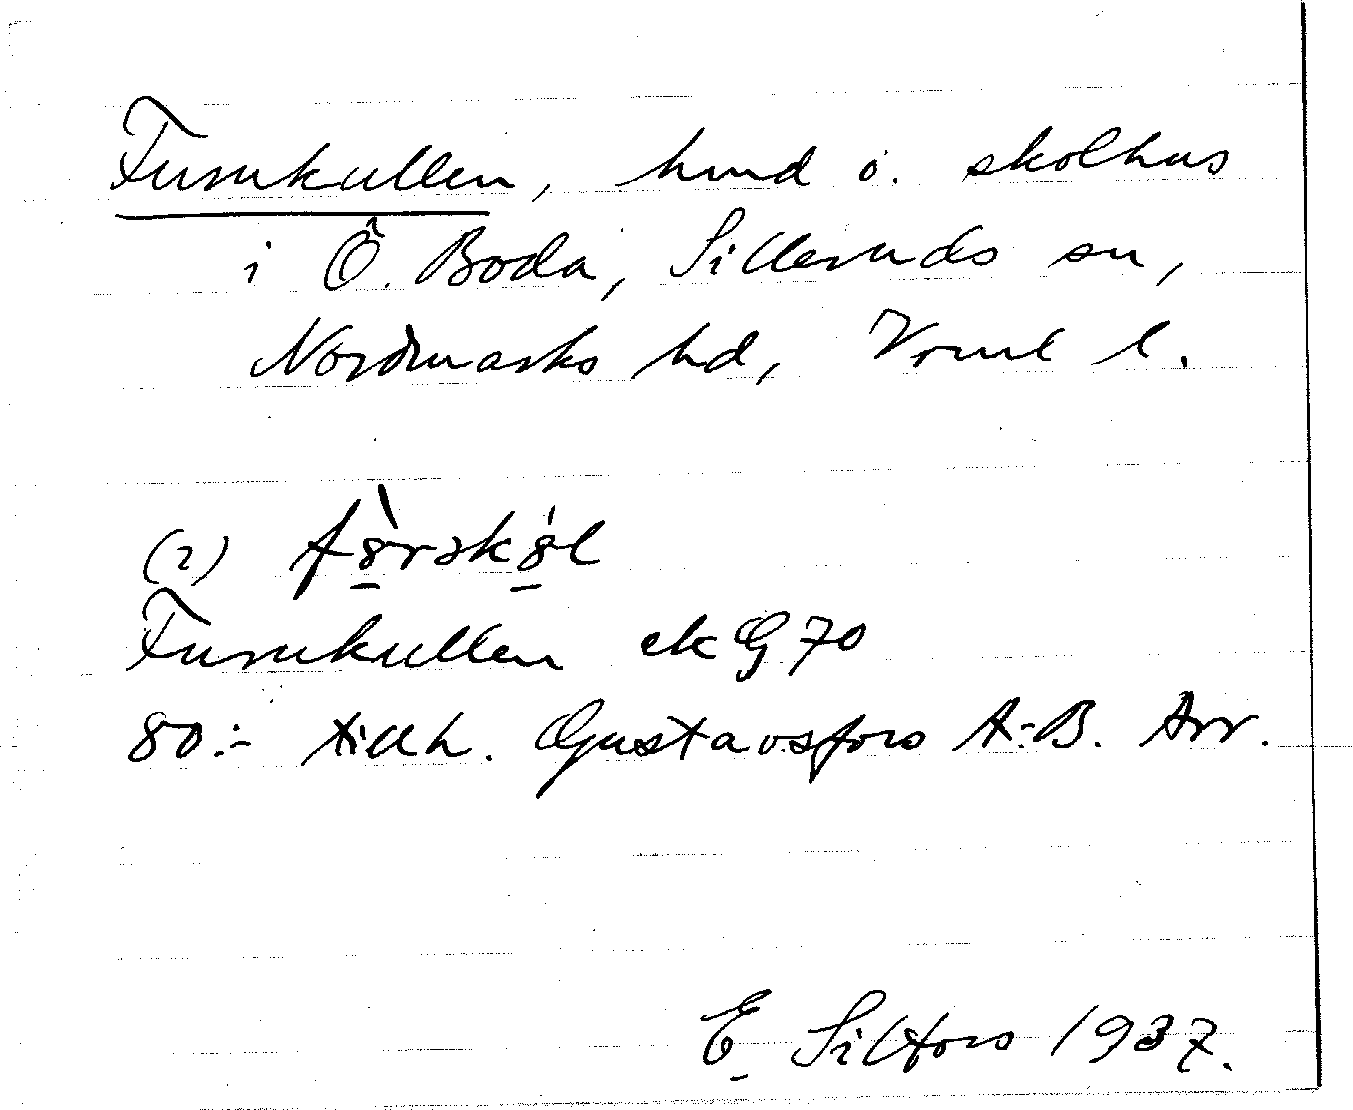 Furukullen, hmd o. skolhus
i Ö. Boda, Silleruds sn,
Nordmarks hd, Vrml l.
(2)
Furukullen ek G 70
80:- tillh. Gustavsfors A.-B. Arr.
E Silfors 1937.